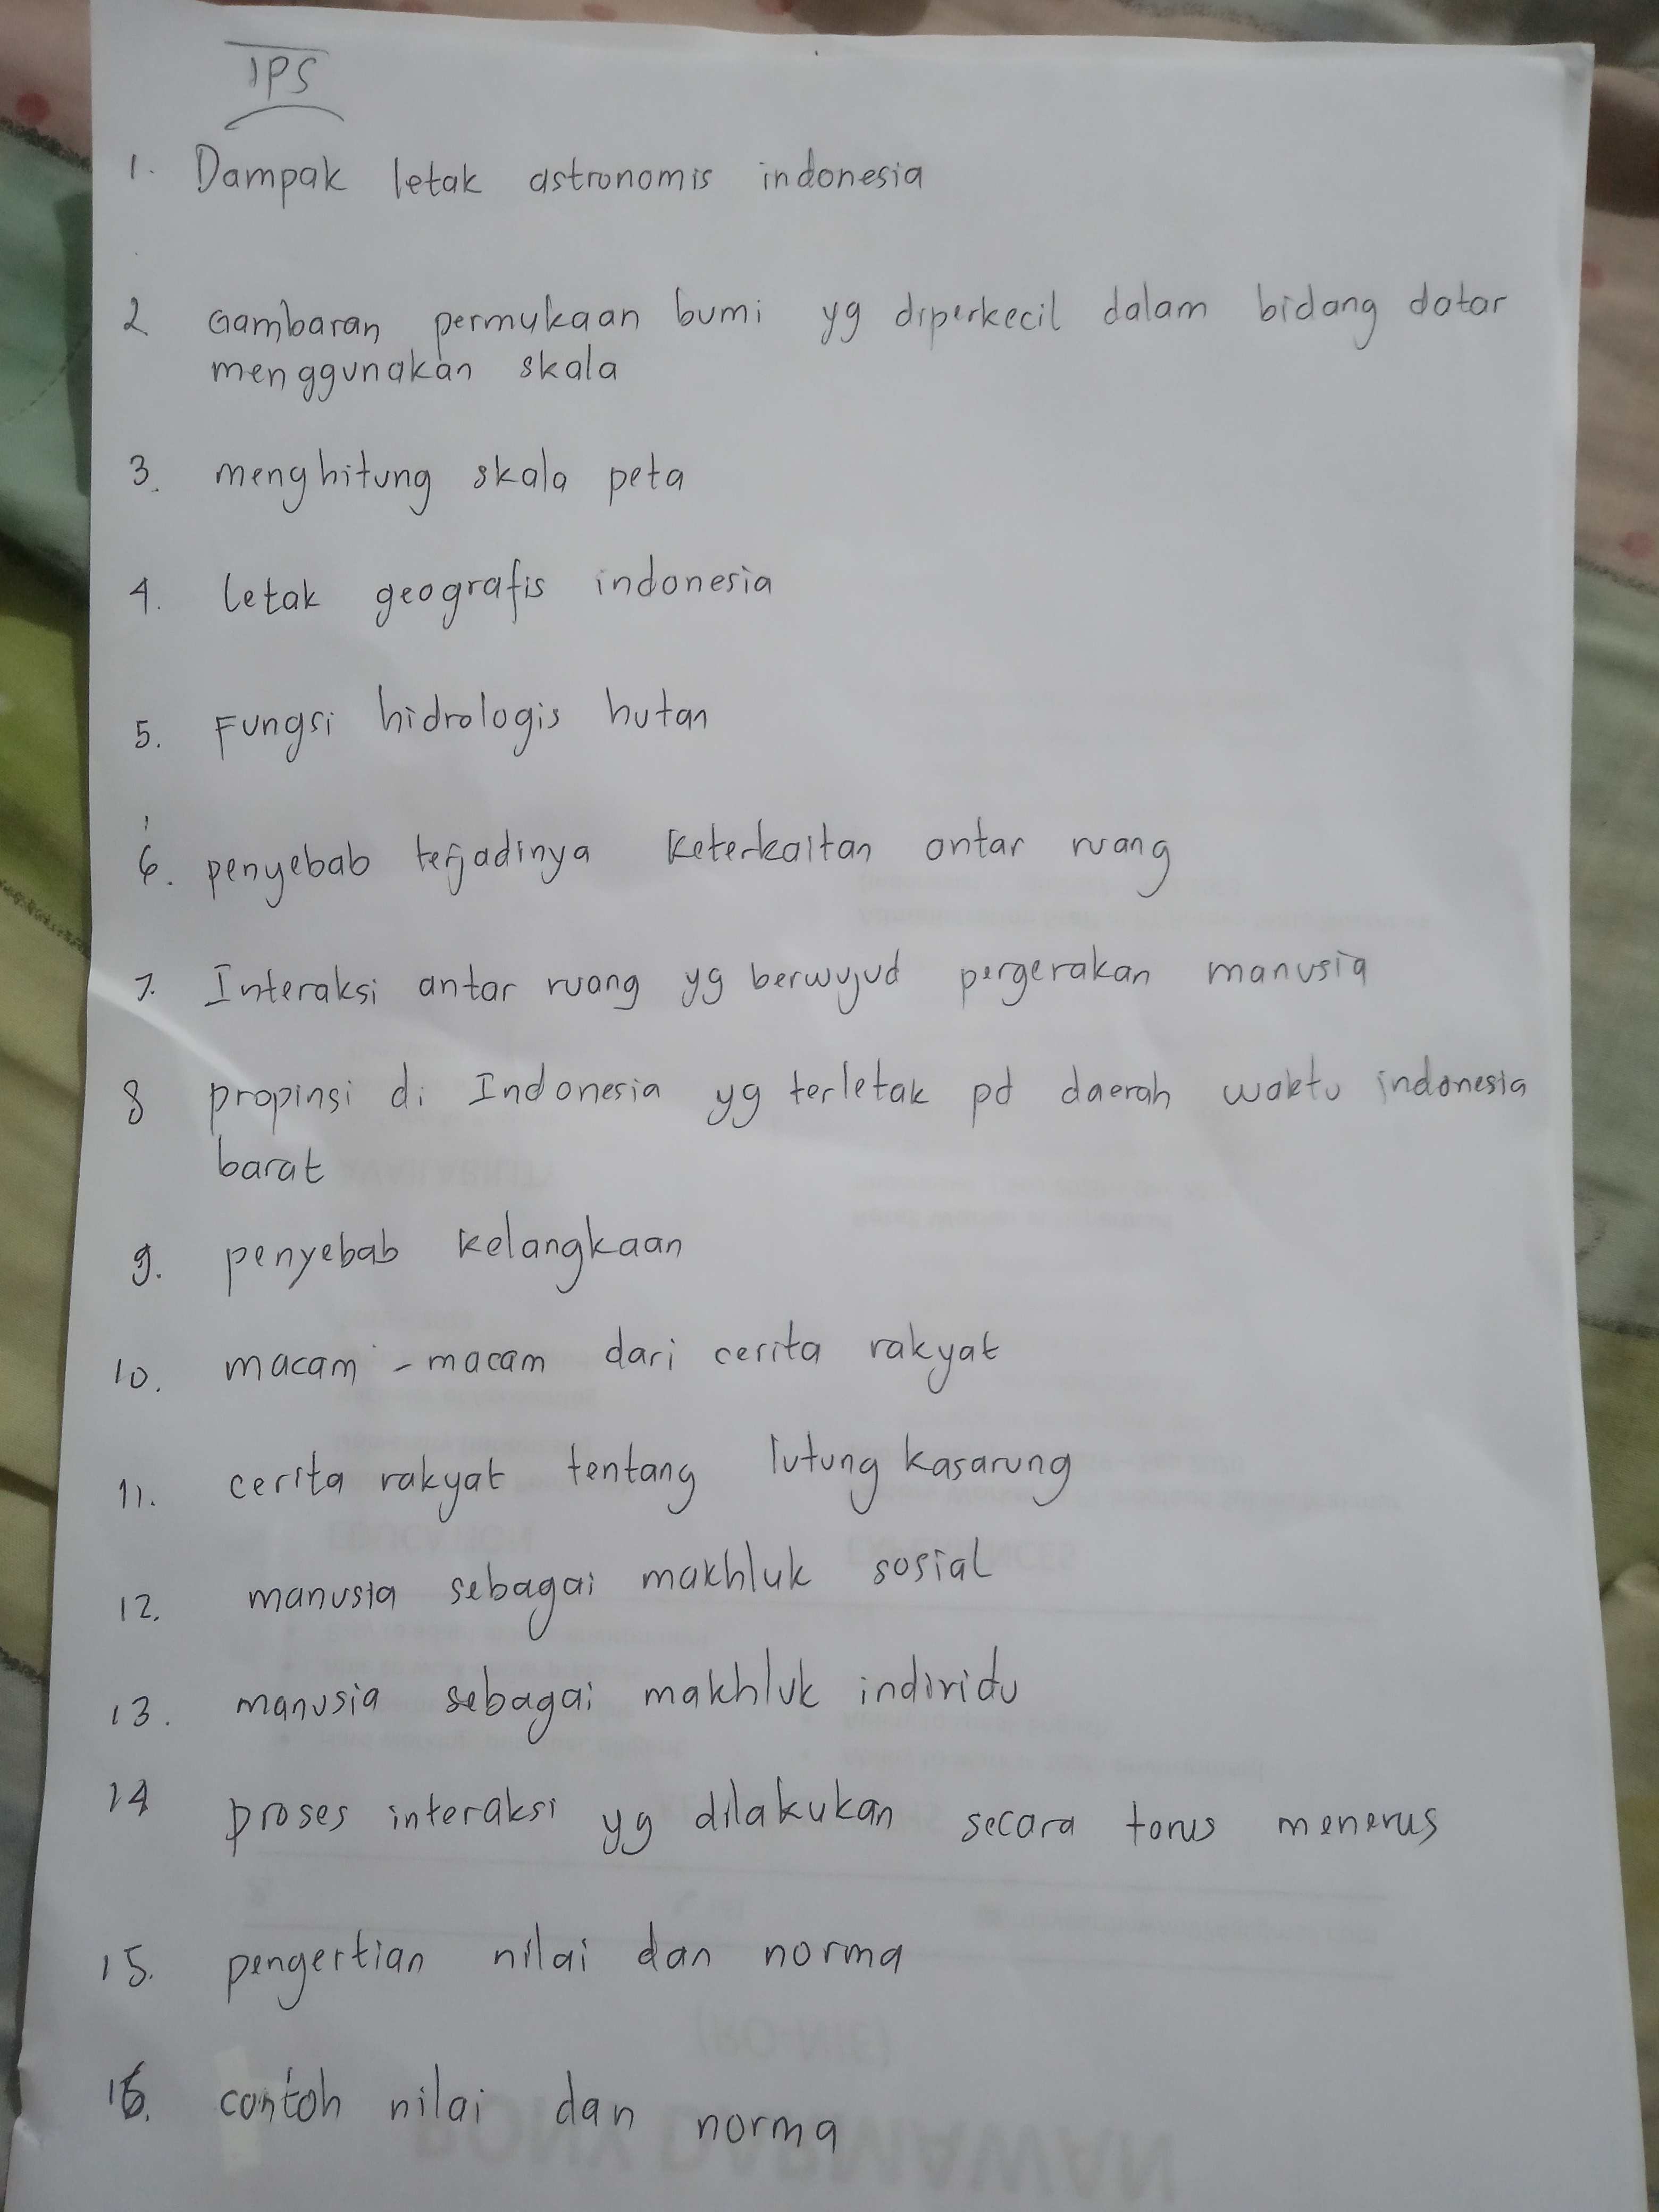 IPS
1. Dampak letak astronomis indonesia
2 Gambaran permukaan bumi yg diperkecil dalam bidang datar
menggunakan skala
3. menghitung skala peta
4. letak geografis indonesia
5. Fungsi hidrologis hutan
6. penyebab terjadinya keterkaitan antar ruang
7. Interaksi antar ruang yg berwujud pergerakan manusia
8 propinsi di Indonesia yg terletak pd daerah waktu indonesia
barat
9. penyebab kelangkaan
10. macam - macam dari cerita rakyat
11. cerita rakyat tentang lutung kasarung
12. manusia sebagai makhluk sosial
13. manusia sebagai makhluk individu
14 proses interaksi yg dilakukan secara torus menerus
15. pengertian nilai dan norma
16. contoh nilai dan norma